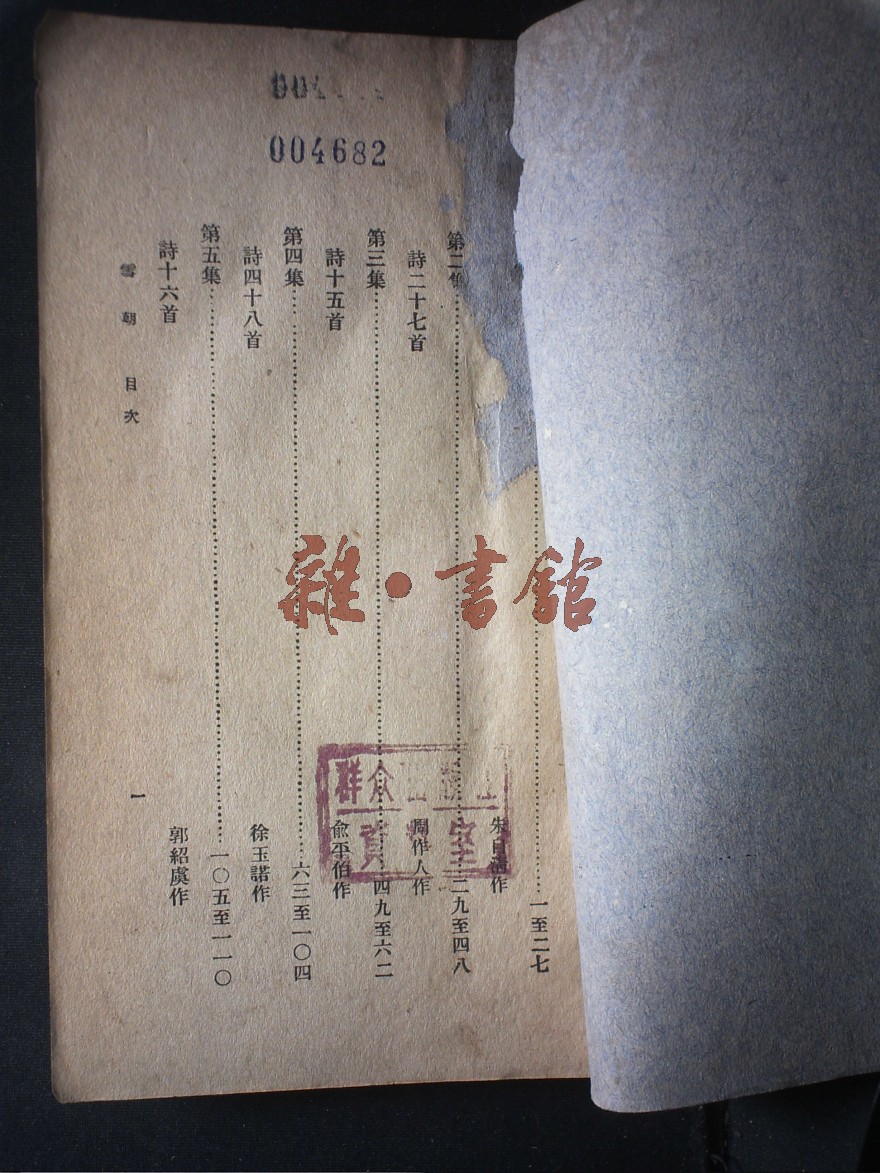 004682
一至二七
朱自清作
第二集……二九至四八
詩二十七首
周作人作
第三集……四九至六二
詩十五首
兪平伯作
第四集……六三至一〇四
詩四十八首
徐玉諾作
第五集……一〇五至一一〇
詩十六首
郭紹虞作
雪朝 目次
一
群众
資 室
雜·書館